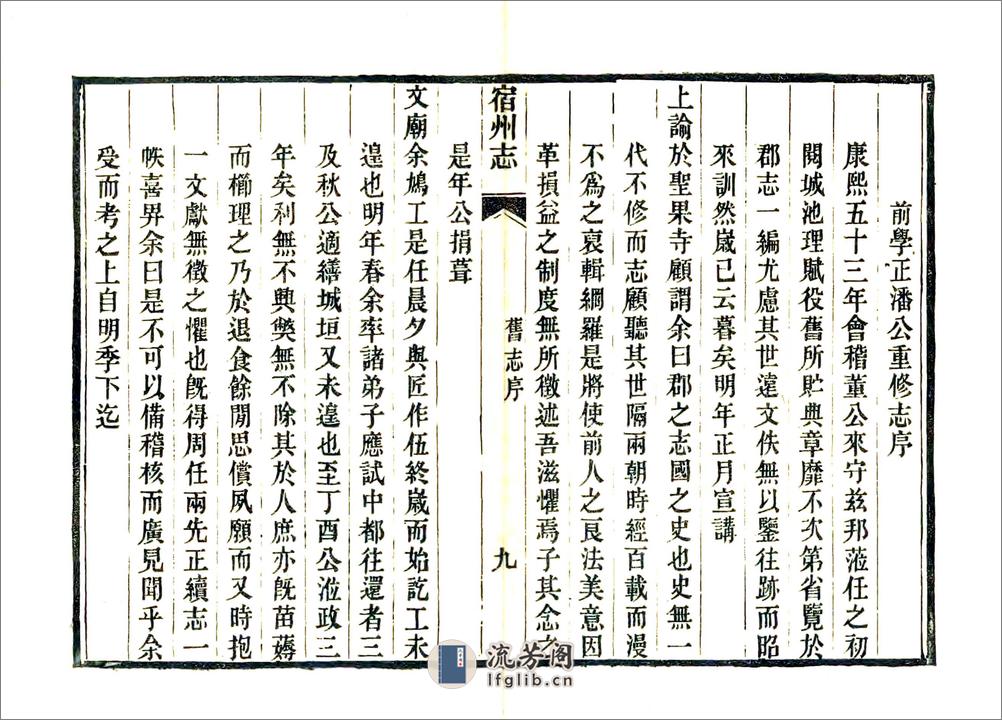 前學正潘公重修志序
康熙五十三年會稽董公來守茲邦蒞任之初
閱城池理賦役舊所貯典章靡不次第省覽於
郡志一編尤慮其世遠文佚無以鑒往跡而昭
來訓然歲已云暮矣明年正月宣講
上諭於聖果寺顧謂余曰郡之志國之史也史無一
代不修而志顧聽其世隔兩朝時經百載而漫
不爲之裒輯綱羅是將使前人之良法美意因
革損益之制度無所徵述吾滋懼焉子其念之
是年公捐葺
宿州志
舊志序
九
文廟余鳩工是任晨夕與匠作伍終歲而始訖工未
遑也明年春余率諸弟子應試中都往還者三
及秋公適繕城垣又未遑也至丁酉公涖政三
年矣利無不興獘無不除其於人庶亦旣苗薅
而櫛理之乃於退食餘閒思償夙願而又時抱
一文獻無徵之懼也旣得周任兩先正續志一
帙喜畀余曰是不可以備稽核而廣見聞乎余
受而考之上自明季下迄
流芳阁
lfglib.cn